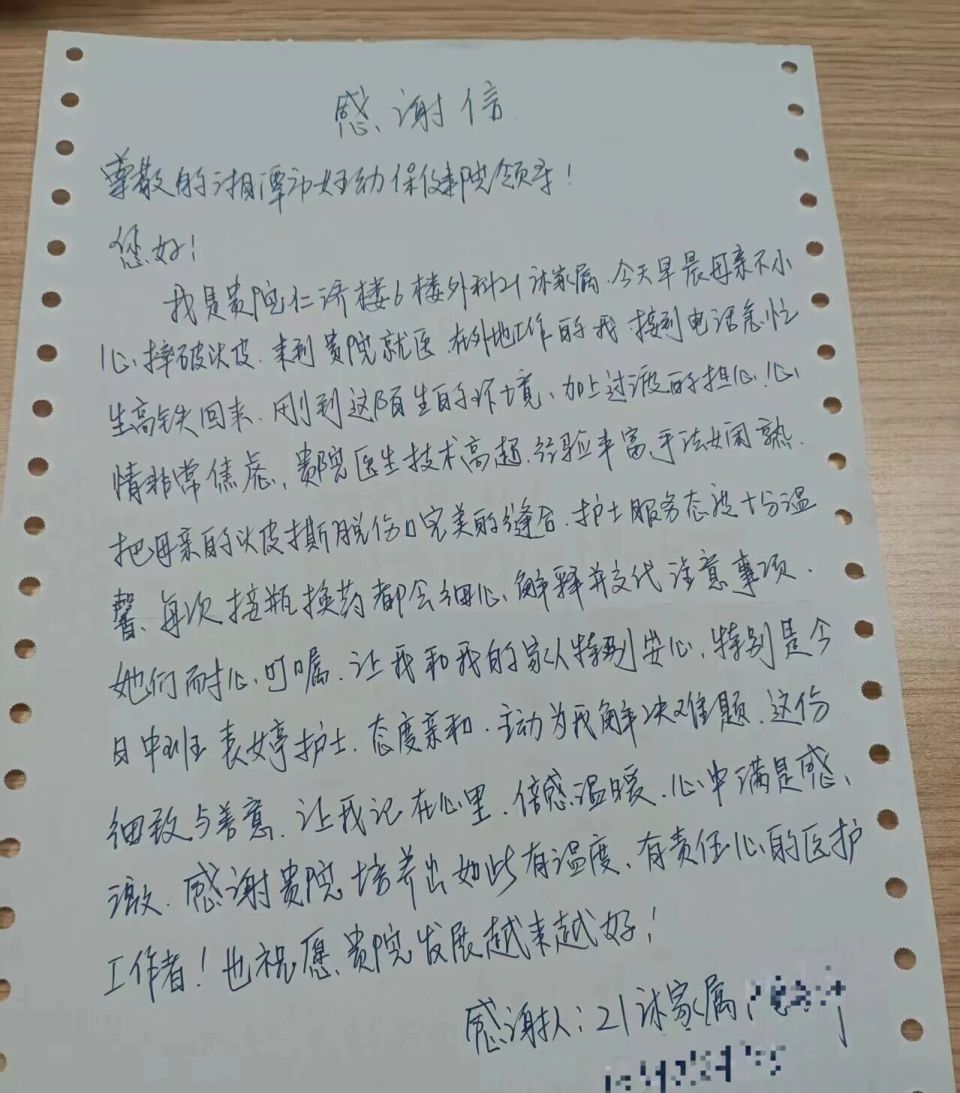 感谢信
尊敬的湘潭市妇幼保健院领导!
您好!
我是贵院仁济楼6楼外科21床家属.今天早晨母亲不小
心摔破头皮.来到贵院就医.在外地工作的我接到电话急忙
坐高铁回来.刚到这陌生的环境、加上过渡的担心!心
情非常焦虑,贵院医生技术高超.经验丰富,手法娴熟.
把母亲的头皮撕脱伤口完美的缝合.护士服务态度十分温
馨、每次接瓶换药都会细心解释并交代注意事项.
她们耐心叮嘱.让我和我的家人特别安心,特别是今
日中班袁婷护士.态度亲和.主动为我解决难题.这份
细致与善意.让我记在心里.倍感温暖.心中满是感
激.感谢贵院培养出如此有温度、有责任心的医护
工作者!也祝愿贵院发展越来越好!
感谢人:21床家属